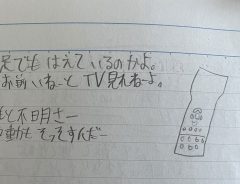 足でも はえているのかよ。
お前いねーと TV見れねーよ。
と不明さー
動も そっすんだー